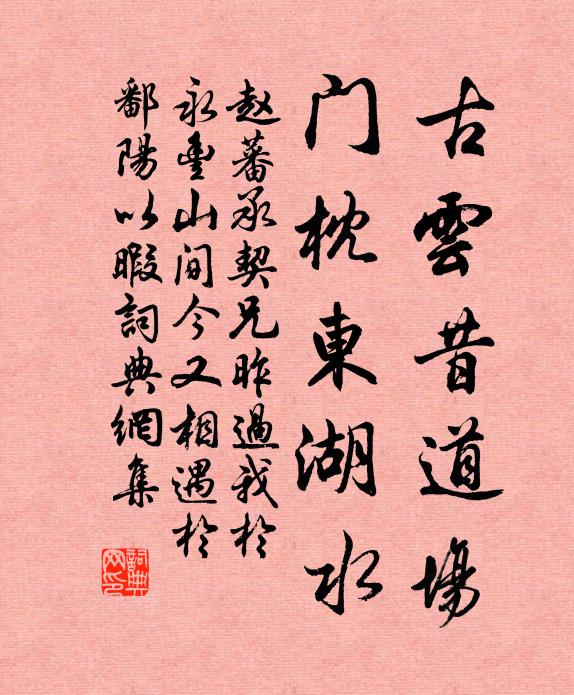 古雲昔道場
門枕東湖水
赵蕃承契兄昨過我於
永豊山间今又相遇於
鄱陽以暇詞典網集
詞典网印